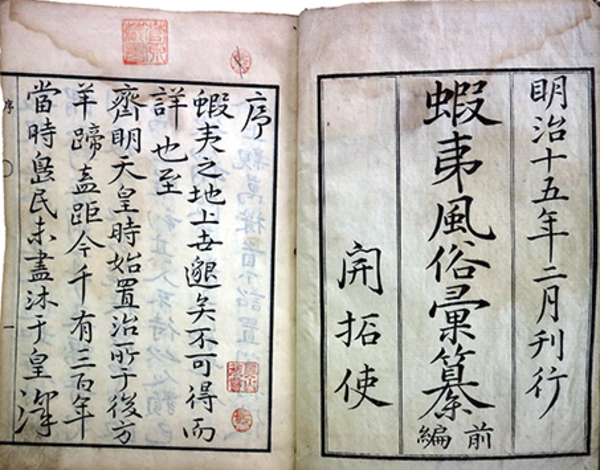 明治十五年二月刊行
蝦夷風俗彙纂
前編
開拓使
序
蝦夷之地上世邈矣不可得而
詳也至
齊明天皇時始置治所于後方
羊蹄盖距今千有三百年
當時島民未盡沐于皇澤
序
一